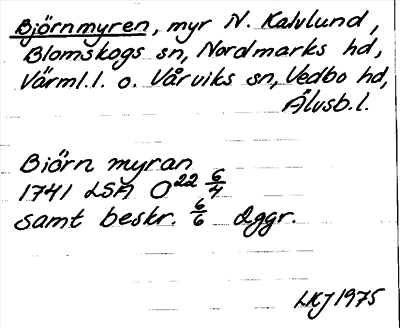 Björnmyren, myr N. Kalvlund,
Blomskogs sn, Nordmarks hd,
Värml.l. o. Vårviks sn, Vedbo hd,
Älvsb.l.
Biörn myran
1741 LSA O22 6/4
samt beskr. 6/6 dggr.
LKJ 1975